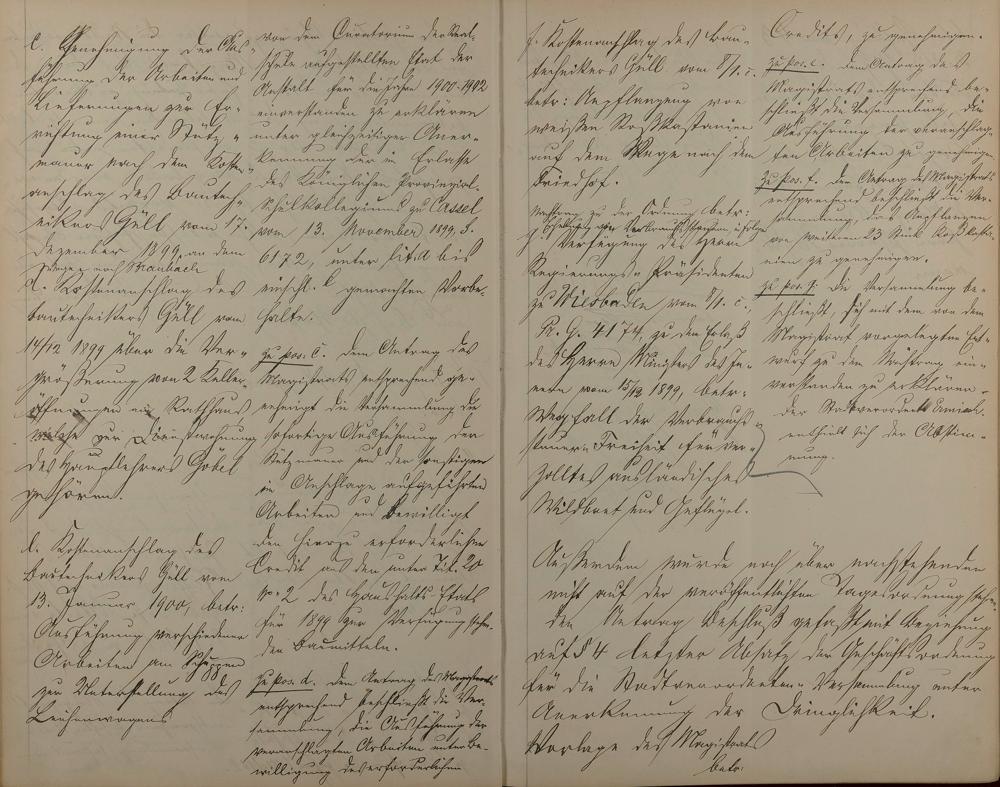 c. Genehmigung der Aus-
führung der Arbeiten und
Lieferungen zur Er-
richtung einer Stütz-
mauer nach dem Kosten-
anschlag des Bautech-
nikers Güll vom 17.
Dezember 1899, an dem
Wege nach Braubach
d. Kostenanschlag des
Bautechnikers Güll vom
14/12 1899 über die Ver-
größerung von 2 Keller-
öffnungen am Rathhaus
welche zur Dienstwohnung
des Hauptlehrers Göbel
gehören.
e. Kostenanschlag des
Bautechnikers Güll vom
13. Januar 1900, betr:
Ausführung verschiedener
Arbeiten am Schuppen
zur Unterstellung des
Leichenwagens
von dem Curatorium der Real-
schule aufgestellten Etat der
Anstalt für die Jahre 1900-1902
einverstanden zu erklären
unter gleichzeitiger Aner-
kennung der im Erlasse
des Königlichen Provinzial-
Schulkollegiums zu Cassel
vom 13. November 1899, S.
6172, unter lit. a bis
einschl. l gemachten Vorbe-
halte.
zu pos. c. Dem Antrag des
Magistrats entsprechend ge-
nehmigt die Versammlung die
sofortige Ausführung der
Stützmauer und der sonstigen
im Anschlage aufgeführten
Arbeiten und bewilligt
den hierzu erforderlichen
Credit aus den unter Tit. 20
No 2 des Haushalts-Etats
für 1899 zur Verfügung stehen-
den Baumitteln.
zu pos. d. Dem Antrag des Magistrats
entsprechend beschließt die Ver-
sammlung, die Ausführung der
veranschlagten Arbeiten unter Be-
willigung des erforderlichen
f. Kostenanschlag des Bau-
technikers Güll vom 8/1. c.
betr: Anpflanzung von
weißen Roßkastanien
auf dem Wege nach dem
Friedhof.
Nachtrag zu der Ordnung betr:
g. Verfügung des Herrn
Regierungs-Präsidenten
zu Wiesbaden vom 8/1. c.,
Pr. G. 4174, zu dem Erlaß
des Herrn Ministers des In-
nern vom 15/12 1899, betr:
Wegfall der Verbrauchs-
steuer-Freiheit für ver-
zolltes ausländisches
Wildbret und Geflügel.
Credits, zu genehmigen.
zu pos. e. Dem Antrag des
Magistrats entsprechend be-
schließt die Versammlung, die
Ausführung der veranschlag-
ten Arbeiten zu genehmigen
zu pos. f. Dem Antrag des Magistrats
entsprechend beschließt die Ver-
sammlung, das Anpflanzen
von weiteren 23 Stück Roßkasta-
nien zu genehmigen.
zu pos. g. Die Versammlung be-
schließt, sich mit dem von dem
Magistrat vorgelegten Ent-
wurf zu dem Nachtrag ein-
verstanden zu erklären.
Der Stadtverordnete
enthielt sich der Abstim-
mung.
Außerdem wurde noch über nachstehenden
nicht auf der veröffentlichten Tagesordnung stehen-
den Antrag Beschluß gefaßt mit Beziehung
auf § 4 letzter Absatz der Geschäftsordnung
für die Stadtverordneten-Versammlung unter
Anerkennung der Dringlichkeit.
Vorlage des Magistrats
betr: